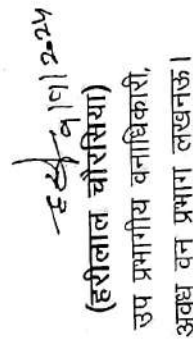 (हरीलाल चौरसिया)
उप प्रभागीय वनाधिकारी,
अवध वन प्रभाग लखनऊ।